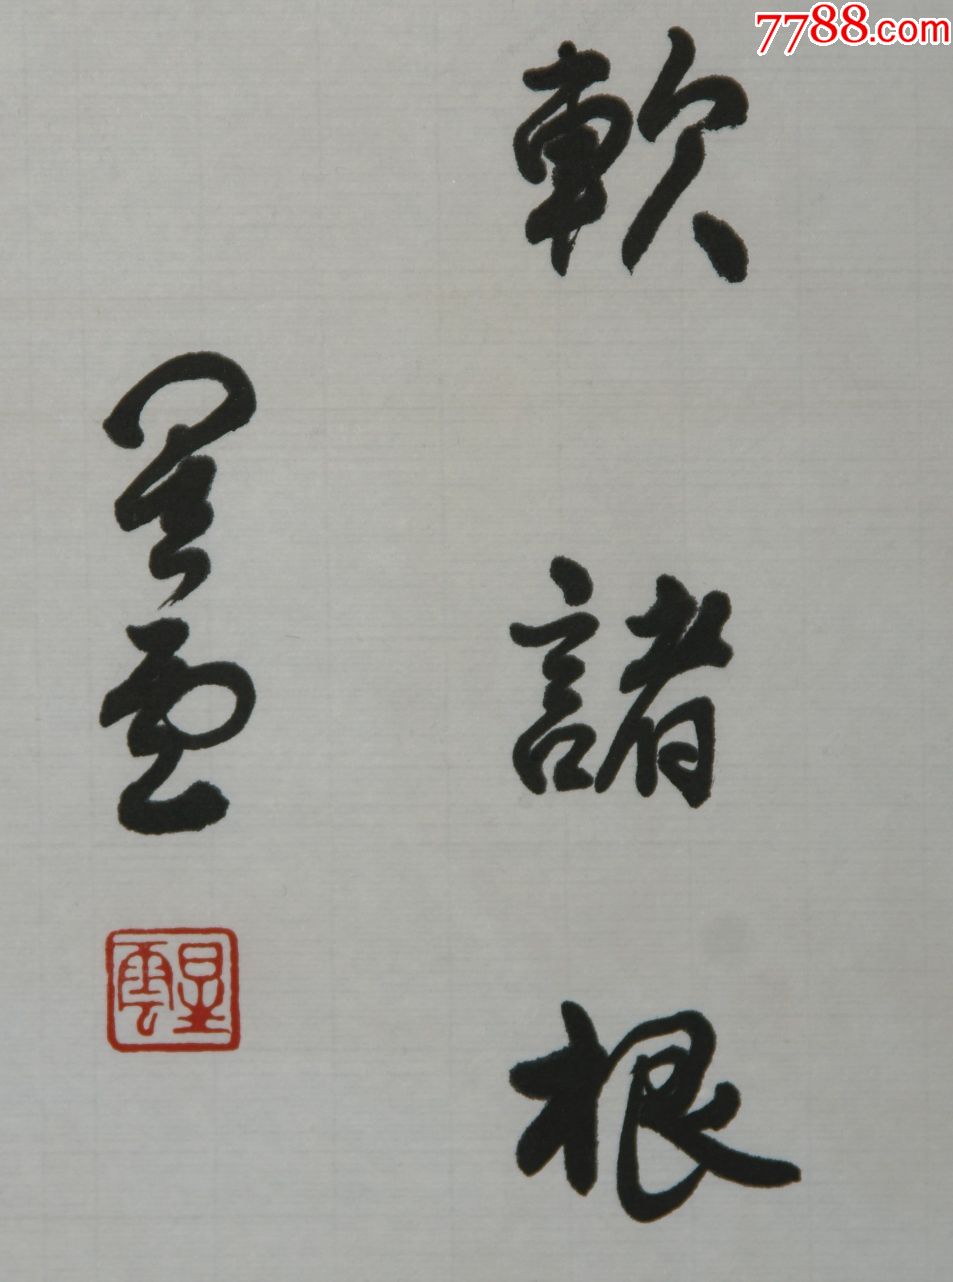 7788.com
軟諸根
星雲
星雲